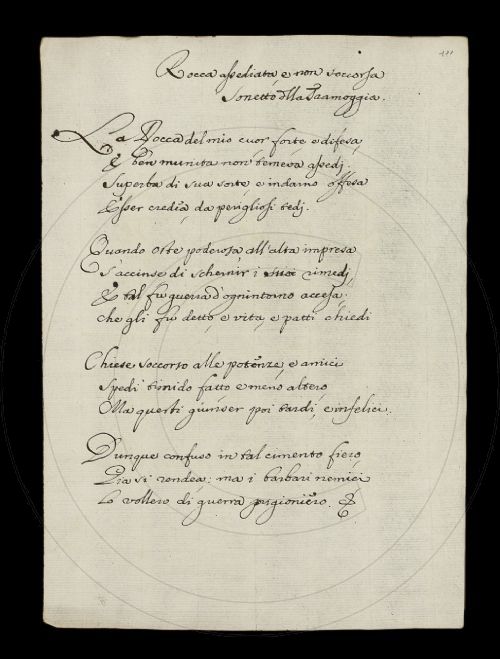 Rocca assediata, e non soccorsa
Sonetto della Samoggia.
La Rocca del mio cuor forte e difesa,
E ben munita non temeva assedj.
Superba di sua sorte, e indarno offesa
Esser credia, da perigliosi tedj.
Quando Oste poderosa, all'alta impresa
S'accinse di schernir i suoi rimedj,
E tal fu guerra d'ognintorno accesa,
che gli fu detto, e vita, e patti chiedi
Chiese soccorso alle potenze, e amici
Spedì timido fatto e meno altero,
Ma questi giunser poi tardi, e infelici.
Dunque confuso in tal cimento fiero,
Già si rendea; ma i barbari nemici
Lo vollero di guerra prigioniero.